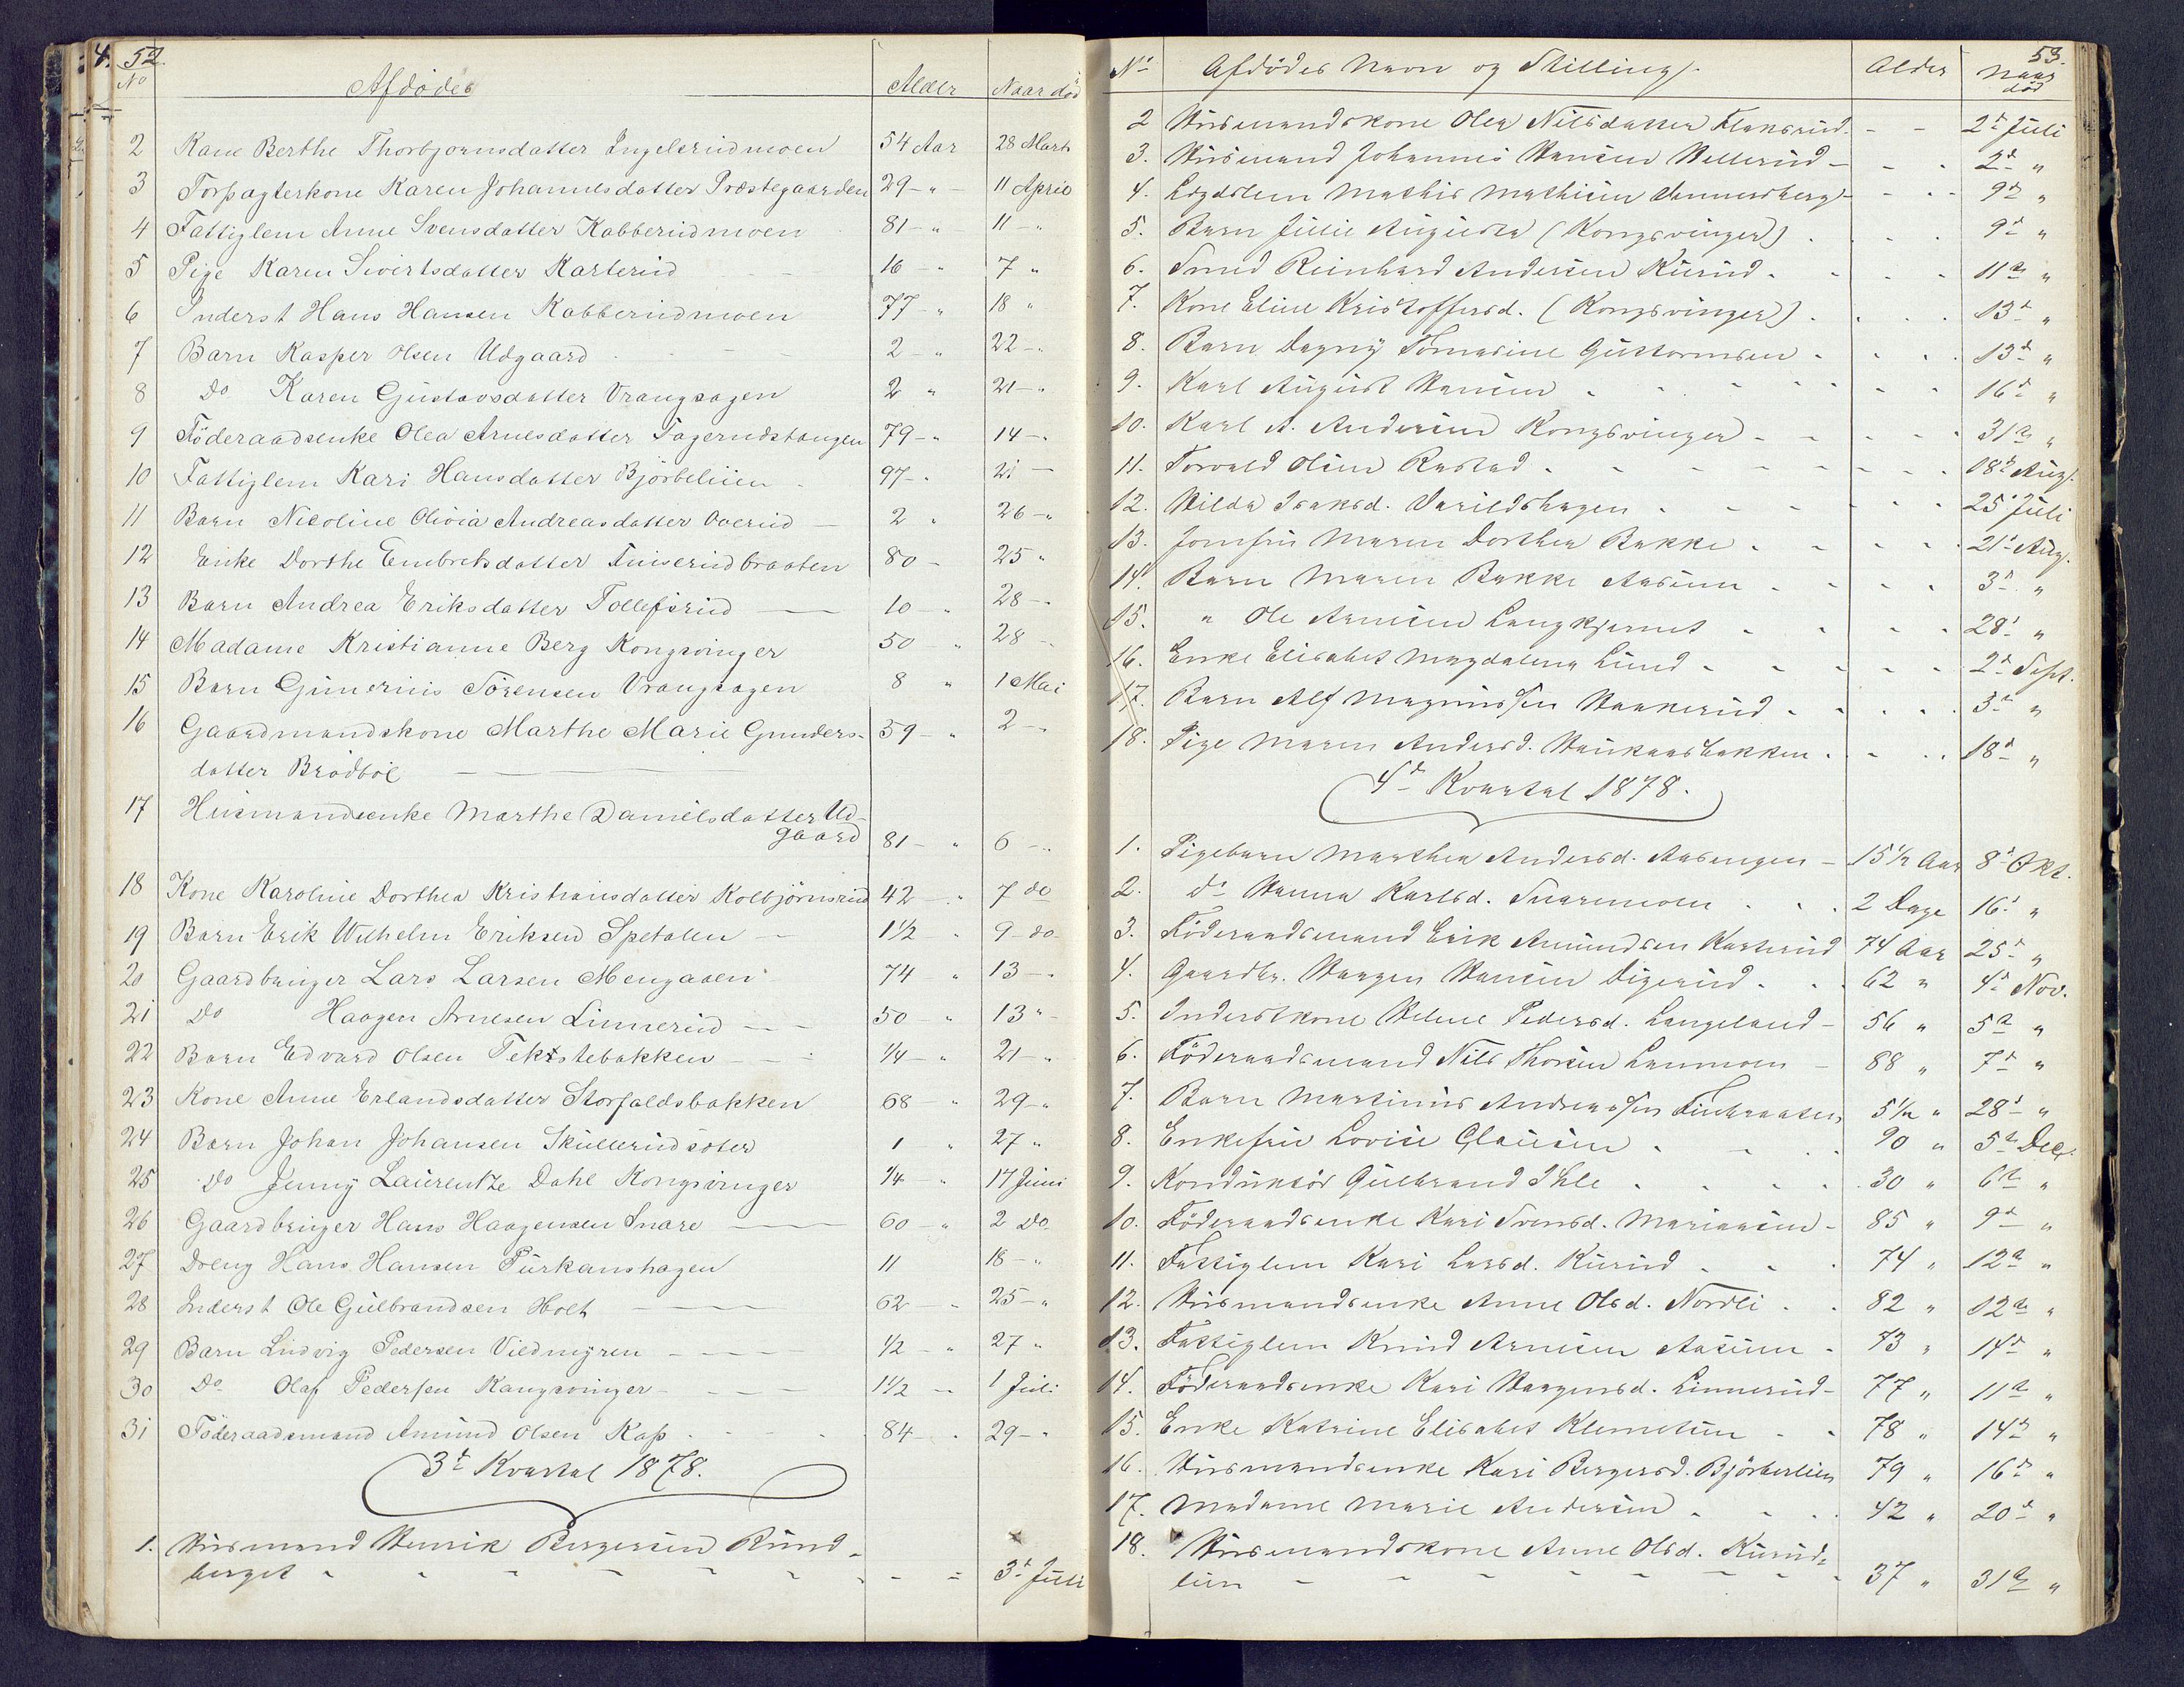 52.
No Afdödes Alder Naar död
2 Kone Berthe Thorbjornsdatter Ingelsrudmoen 54 Aar 28 Marts
3 Forpagterkone Karen Johannesdatter Præstegaarden 29 - " - 11 April
4 Fattiglem Anne Svensdatter Kabberudmoen 81 - " 11 - "
5 Pige Karen Sivertsdatter Karterud 16 - " 7 "
6 Inderst Hans Hansen Kabberudmoen 77 - " 18 "
7 Barn Kasper Olsen Udgaard 2 - " 22 - "
8 Do Karen Gustavsdatter Vrangsagen 2 " 21 - "
9 Föderaadsenke Olea Arnesdatter Fagerudstangen 79 - " 14 - "
10 Fattiglem Kari Hansdatter Björbeliien 97 - " 21 -
11 Barn Nicoline Olivia Andreasdatter Overud 2 " 26 - "
12 Enke Dorthe Embretsdatter braaten 80 - 25 "
13 Barn Andrea Eriksdatter Tollefsrud 10 - " 28 - "
14 Madame Kristianne Berg Kongsvinger 50 " 28 -
15 Barn Gunerius Sörensen Vrangsagen 8 " 1 Mai
16 Gaardmandskone Marthe Marie Gunders- 59 - " 2 - "
datter Brödböl
17 Husmandsenke Marthe Danielsdatter Ud-
gaard 81 - " 6 - "
18 Kone Karoline Dorthea Kristiansdatter Kolbjörnsrud 42 - " 7 do
19 Barn Erik Wilhelm Eriksen Spetalen 1 1/2 - " 9 - do
20 Gaardbruger Lars Larsen Mengaasen 74 - " 13 - "
21 Do Haagen Arnesen Linnerud 50 - " 13 " -
22 Barn Edvard Olsen Tekstebakken 1/4 - " 21 - "
23 Kone Anne Erlandsdatter Storfaldsbakken 68 - " 29 - "
24 Barn Johan Johansen Skullerudsæter 1 " 27 "
25 Do Jenny Laurentze Dahl Kongsvinger 1/4 - " 17 Juni
26 Gaardbruger Hans Haagensen Snare 60 - " 2 Do
27 Dreng Hans Hansen Purkanshagen 11 18 - "
28 Inderst Ole Gulbrandsen Holt 62 - " 25 - "
29 Barn Ludvig Pedersen Viedmyren 1/2 - " 27 "
30 Do Olaf Pedersen Kongsvinger 1 1/2 - 1 Juli
31 Föderaadsmand Amund Olsen Kaps 84 - " 29 - "
3d Kvartal 1878.
1. Husmand Henrik Bergersen Rund-
berget 3d Juli
53.
No Afdödes Navn og Stilling. Alder Naar död
2 Husmandskone Olea Nilsdatter Flaksrud. 2d Juli
3. Husmand Johannes Hansen Hellerud 2d "
4. Lægdslem Mathis Mathisen Vennersberg 9d "
5. Barn Julie Augusta (Kongsvinger) 9d "
6. Smed Reinhard Andersen Kurud 11te "
7. Kone Eline Kristoffersd. (Kongsvinger) 13d "
8. Barn Dagny Tomasine Guttormsen 13d "
9. Karl August Hansen 16d "
10. Karl A. Andersen Kongsvinger 31te "
11. Torvald Olsen Rastad 18d Aug.
12. Hilda Isaksd. Varildshagen 25d Juli
13. Jomfru Maren Dorthea Bakke 21d Aug.
14. Barn Maren Bakke Aasum 3d "
15. " Ole Arnesen Langkjernet 28d "
16. Enke Elisabet Magdalena Lund 2d Sept.
17. Barn Alf Magnussen Haakerud 3d "
18. Pige Maren Andersd. Haukaasbakken 18d "
4d Kvartal 1878.
1. Pigebarn Marthea Andersd. Aasengen 15 1/2 Aar 8d Okt.
2. do Hanna Karlsd. Snaremoen 2 Dage 16d "
3. Föderaadsmand Erik Amundsen Karterud 74 Aar 25d "
4. Gaardbr. Haagen Hansen Digerud 62 " 4d Nov.
5. Inderstkone Helene Pedersd. Langeland 56 " 5te "
6. Föderaadsmand Nils Thoresen Lanmoen 88 " 7d "
7. Barn Martinus Andreassen Finbraaten 5 1/2 " 28d "
8. Enkefru Lovise Clausen 90 " 5te Dec.
9. Konduktör Gulbrand Ihle 30 " 6te "
10. Föderaadsenke Kari Svensd. Mariaasen 85 " 9d "
11. Fattiglem Kari Larsd. Kurud 74 " 12te "
12. Husmandsenke Anne Olsd. Nordli 82 " 12te "
13. Fattiglem Knud Arnesen Aasum 73 " 14d "
14. Föderaadsenke Kari Haagensd. Linnerud 77 " 11te "
15. Enke Katrine Elisabet Klemetsen 78 " 14d "
16. Husmandsenke Kari Bergersd. Björberlien 79 " 16d "
17. Madame Marie Andersen 42 " 20d "
18. Husmandskone Anne Olsd. Kurud-
lien 37 " 31te "